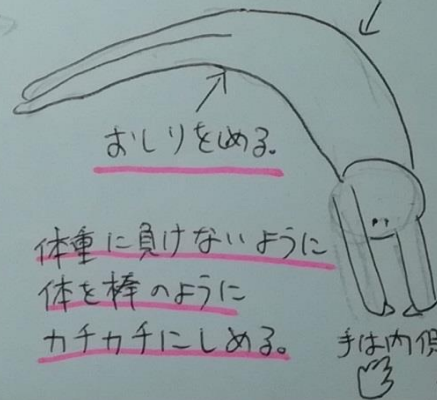 おしりをしめる。
体重に負けないように
体を棒のように
カチカチにしめる。
手は内側